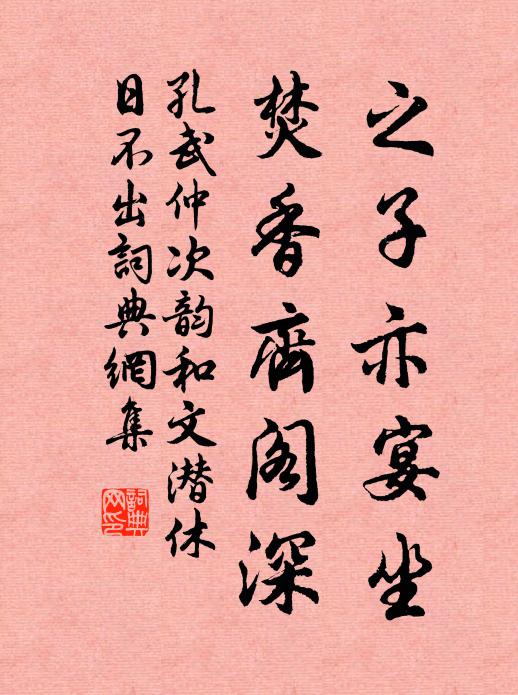 之子亦宴坐
焚香齋阁深
孔武仲次韵和文潜休
日不出詞典網集
詞典网印